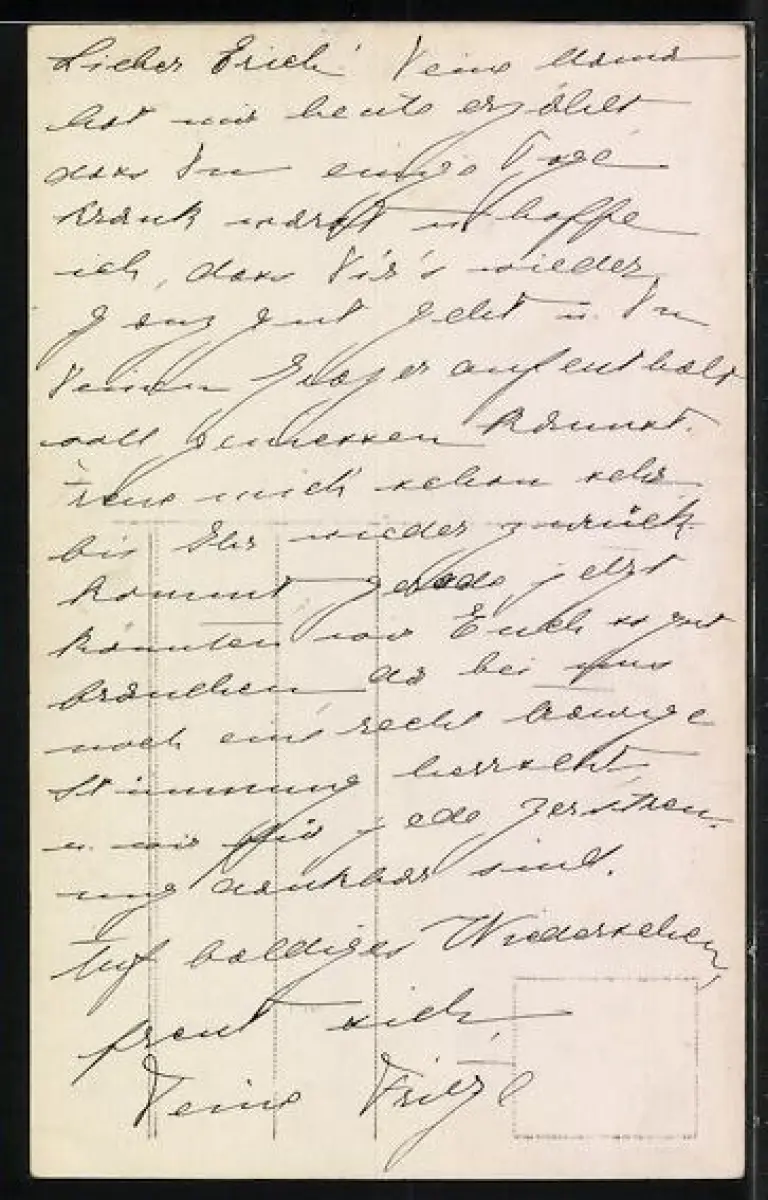 Lieber Erich! Deine Mama
hat mir heute erzählt
dass Du einige Tage
krank warst u. hoffe
ich, dass Dir's wieder
ganz gut geht u. Du
Deinen aufenthalt
voll geniessen kannst.
Freue mich schon sehr
bis Ihr wieder zurück
kommt, gerade jetzt
könnten wir Euch so gut
brauchen da bei uns
noch eine recht traurige
Stimmung herrscht
u. wir für jede Zerstreu-
ung dankbar sind.
Auf baldiges Wiedersehen,
freut sich,
Deine